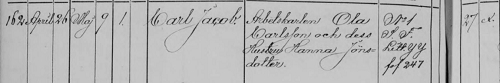 162. April. 26 Maj 9 1. Carl Jacob Arbetskarlen Ola N:o 1
Carlsson och dess S. F.
Hustru Hanna Jöns-
dotter. fol 247
27